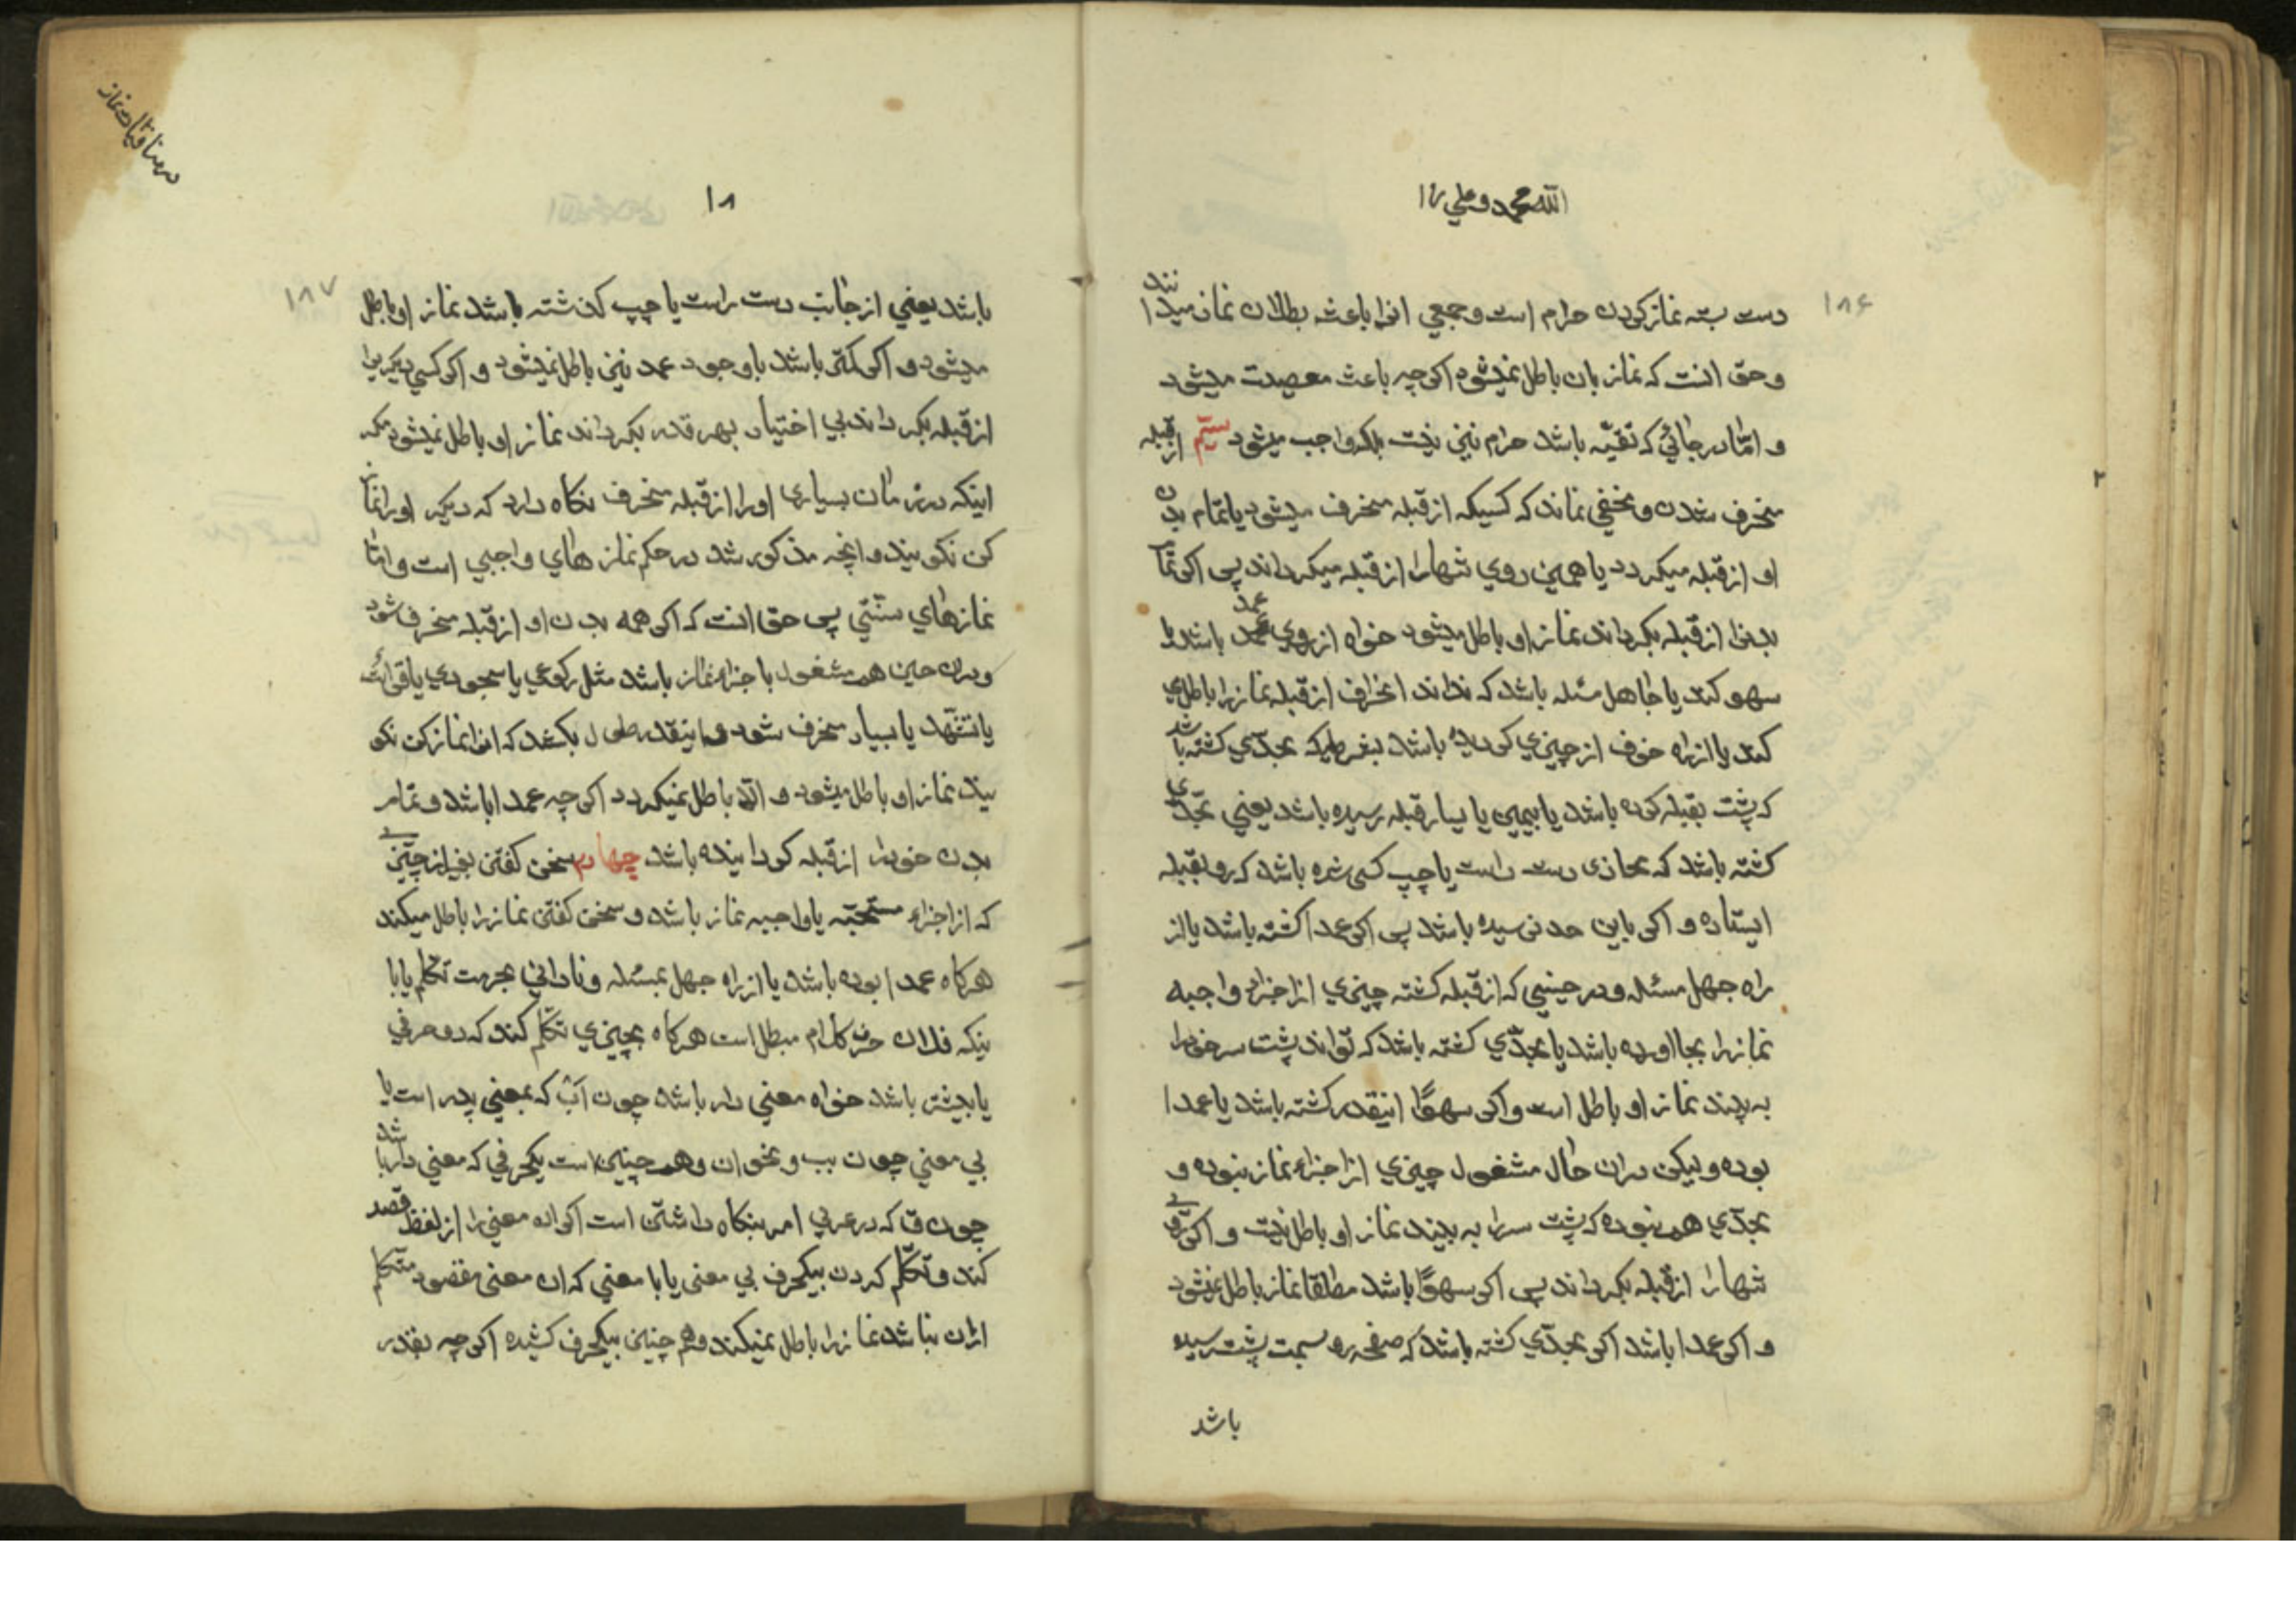 الله محمد و علي را
۱۸۶
دست بسته نماز کردن حرام است و جمعي انرا باعث بطلان نماز میدانند
و حق انست که نماز بان باطل نمیشود اکرچه باعث معصیت میشود
و امّا در جائي که تقیّه باشد حرام نیز نیست بلکه واجب میشود سیّم از قبله
منحرف شدن و مخفي نماند که کسیکه از قبله منحرف میشود یا تمام بدن
او از قبله میکردد یا همین روي تنها را از قبله میکرداند پس اکر تمام
بدنرا از قبله بکرداند نماز او باطل میشود خواه از روي عمد باشد یا
سهو کند یا جاهل مسئله باشد که نداند انحراف از قبله نمازرا باطل مي
کند یا از راه خوف از چیزي کردیده باشد بشرطیکه بحدّي کشته باشد
که پشت بقبله کرده باشد یا بیمین یا یسار قبله رسیده باشد یعني بحدّي
کشته باشد که محاذي دست راست یا چپ کسي شده باشد که رو بقبله
ایستاده و اکر باین حد نرسیده باشد پس اکر عمدا کشته باشد یا از
راه جهل مسئله و در حینیي که از قبله کشته چیزي از اجزاء واجبه
نمازرا بجا اورده باشد یا بحدّي کشته باشد که تواند پشت سر خودرا
به بیند نماز او باطل است و اکر سهوًا اینقدر کشته باشد یا عمدا
بوده و لیکن دران حال مشغول چیزي از اجزاء نماز نبوده و
بحدّي هم نبوده که پشت سررا به بیند نماز او باطل نیست و اکر روي
تنها را از قبله بکرداند پس اکر سهوًا باشد مطلقا نماز باطل نمیشود
و اکر عمدا باشد اکر بحدّي کشته باشد که صفحه رو بسمت پشت رسیده
باشد
در منافیات نماز
۱۸
۱۸۷
باشد یعني از جانب دست راست یا چپ کذشته باشد نماز او باطل
میشود و اکر کمتر باشد با وجود عمد نیز باطل نمیشود و اکر کسي دیکریرا
از قبله بکرداند بي اختیار بهر قدر بکرداند نماز او باطل نمیشود مکر
اینکه در زمان بسیاري اورا از قبله منحرف نکاه دارد که دیکر اورا نماز
کن نکویند و انچه مذکور شد در حکم نماز هاي واجبي است و امّا
نمازهاي سنّتي پس حق انست که اکر همه بدن او از قبله منحرف شود
و دران حین هم مشغول باجزاء نماز باشد مثل رکوعي یا سجودي یا قرائت
یا تشهّد یا بسیار منحرف شود و اینقدر طول بکشد که انرا نماز کن نکو
یند نماز او باطل میشود و الّا باطل نمیکردد اکرچه عمدا باشد و تمام
بدن خودرا از قبله کردانیده باشد چهارم سخن کفتن بغیر از چیزي
که از اجزاء مستحبّه یا واجبه نماز باشد و سخن کفتن نمازرا باطل میکند
هرکاه عمدا بوده باشد یا از راه جهل بمسئله و ناداني بحرمت تکلم یا با
ینکه فلان حرف کلام مبطل است هرکاه بچیزي تکلّم کند که دو حرفي
یا بیشتر باشد خواه معني دار باشد چون آب که بمعني پدر است یا
بي معني چون بب و نحو ان و هم چنین است یکحرفي که معني دار باشد
چون ق که در عربي امر بنکاه داشتن است اکر ان معني را از لفظ قصد
کند و تکلّم کردن بیکحرف بي معني یا با معني که ان معني مقصود متکلّم
ازان نباشد نمازرا باطل نمیکند و هم چنین بیکحرف کشیده اکرچه بقدر